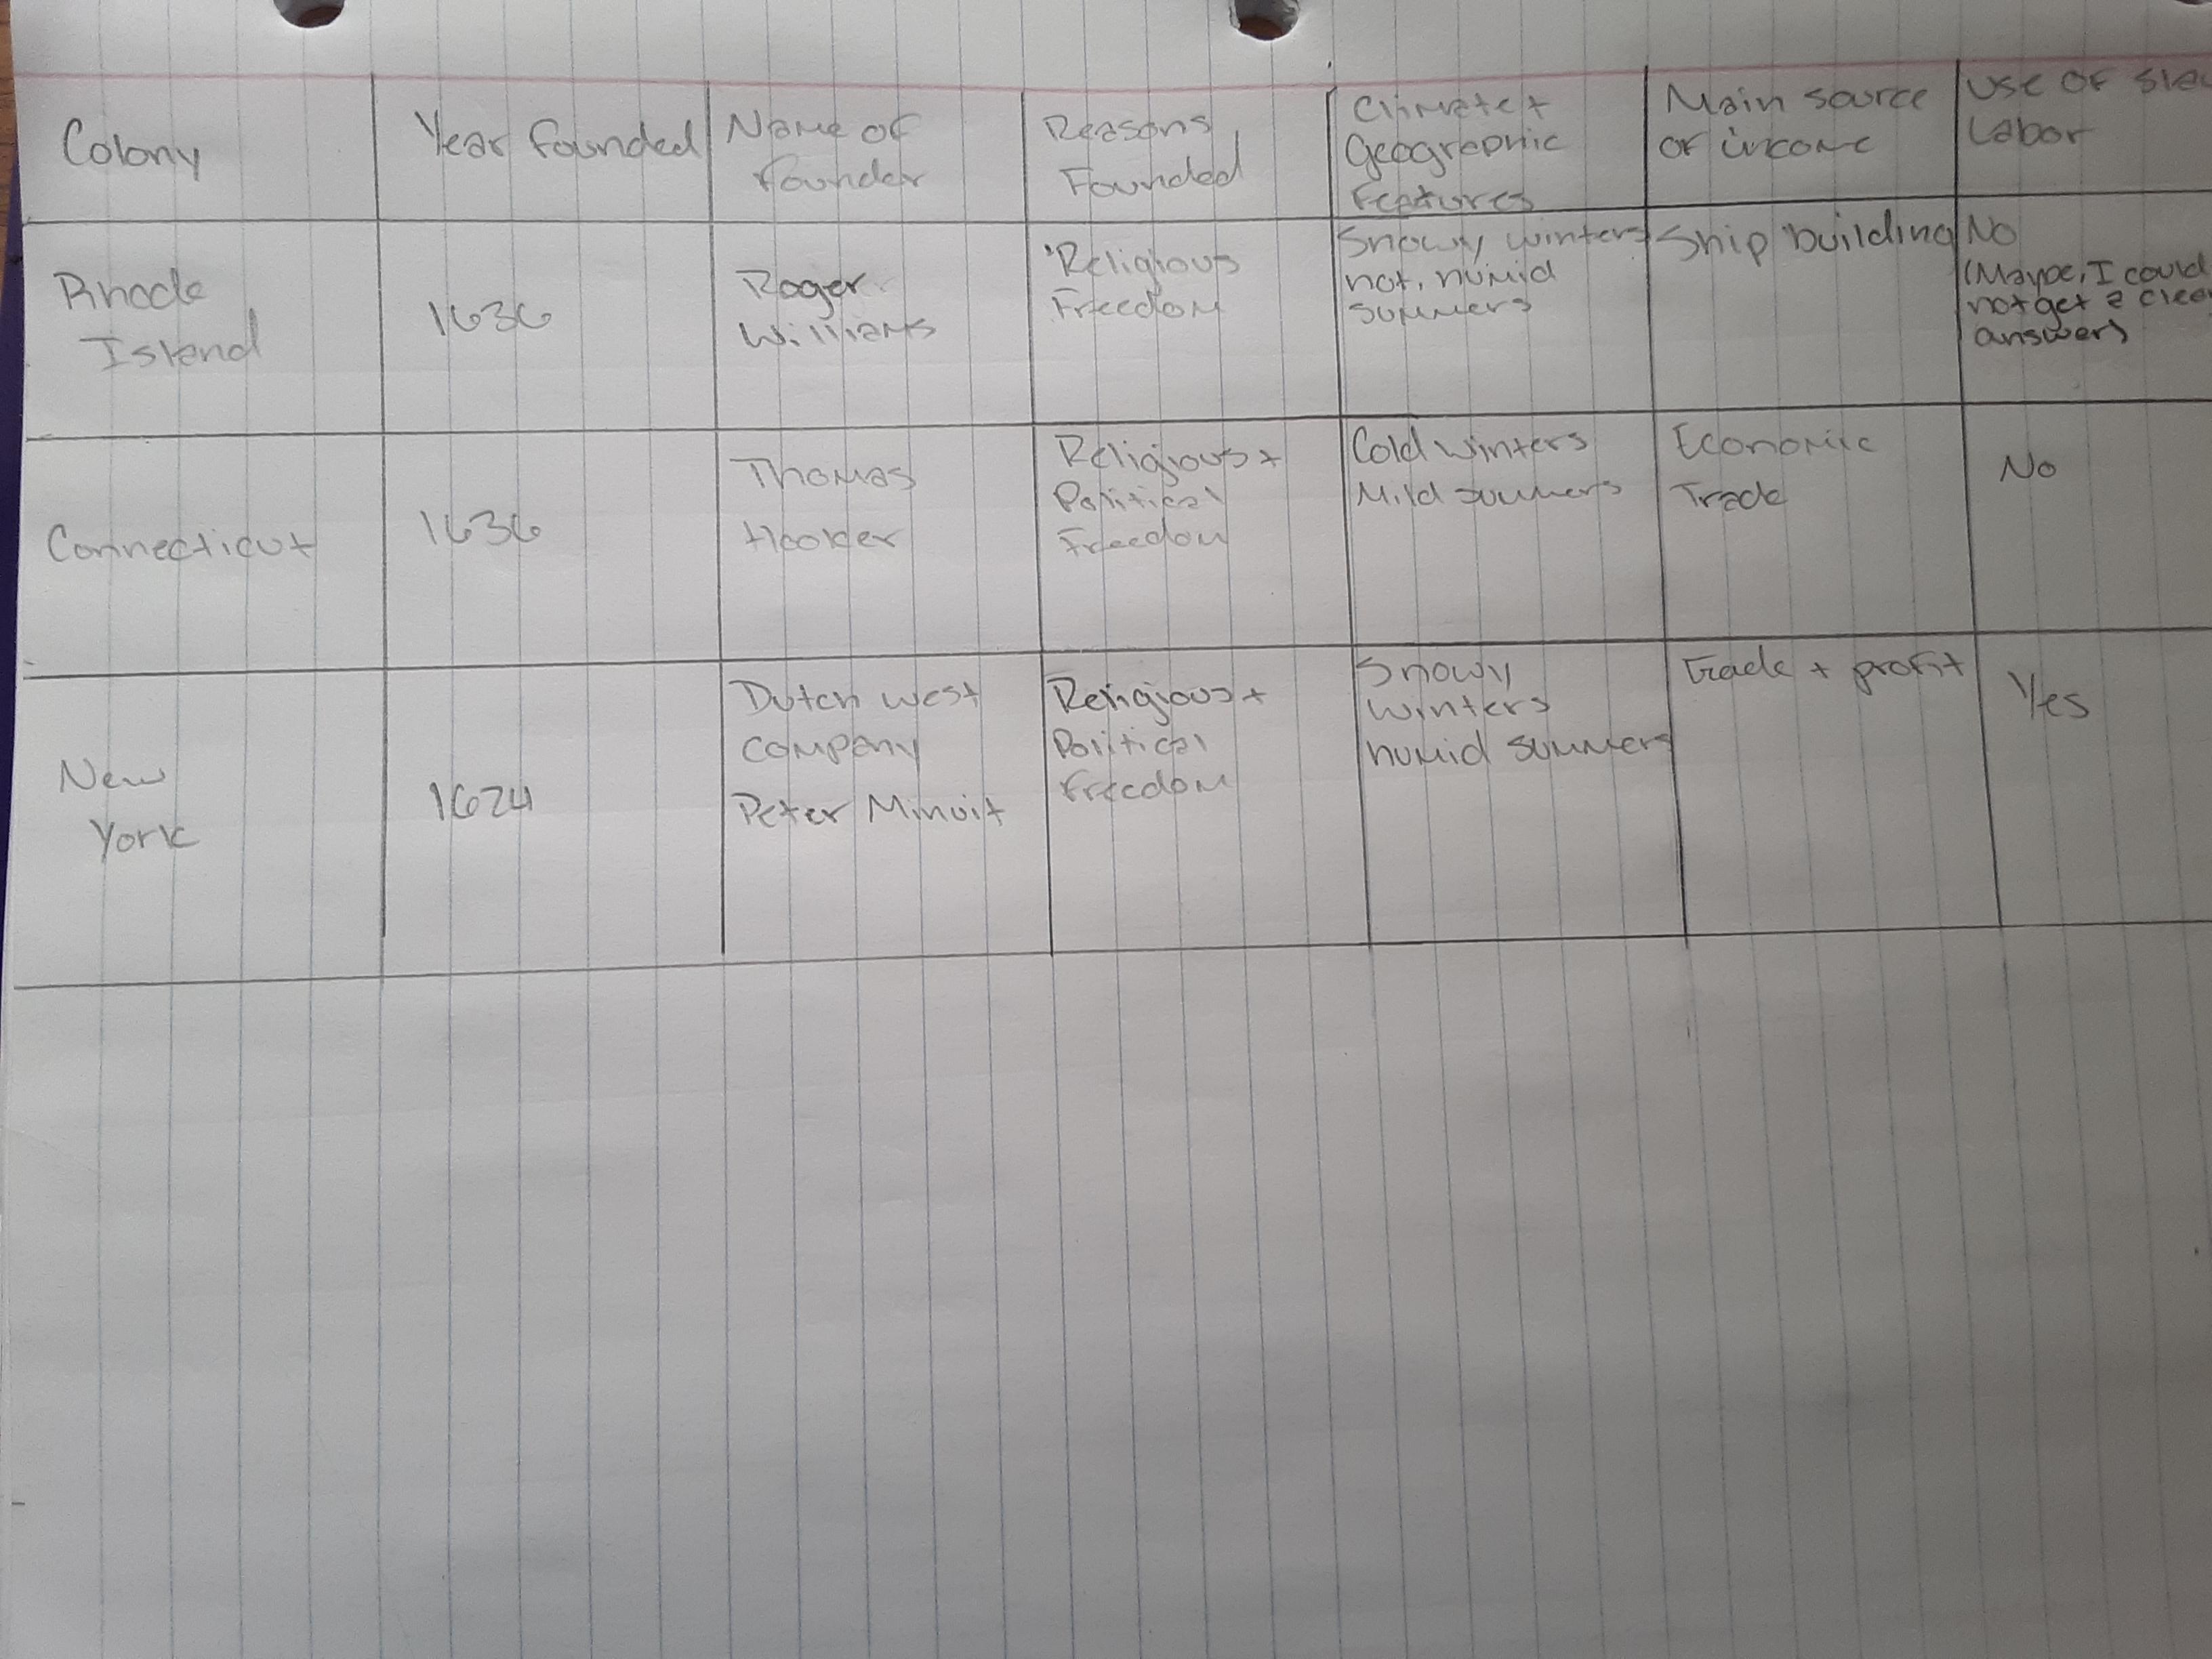 Colony
Year Founded
Name of
Founder
Reasons
Founded
Climate +
Geographic
Features
Main source
of income
Use of
Labor
Rhode
Island
1636
Roger
Williams
Religious
Freedom
Snowy winters
hot, humid
summers
Ship building
No
(Maybe, I could
not get a
answer)
Connecticut
1636
Thomas
Hooker
Religious +
Political
Freedom
Cold winters
Mild summers
Economic
Trade
No
New
York
1624
Dutch west
company
Peter Minuit
Religious +
Political
Freedom
Snowy
winters
humid summers
trade + profit
Yes